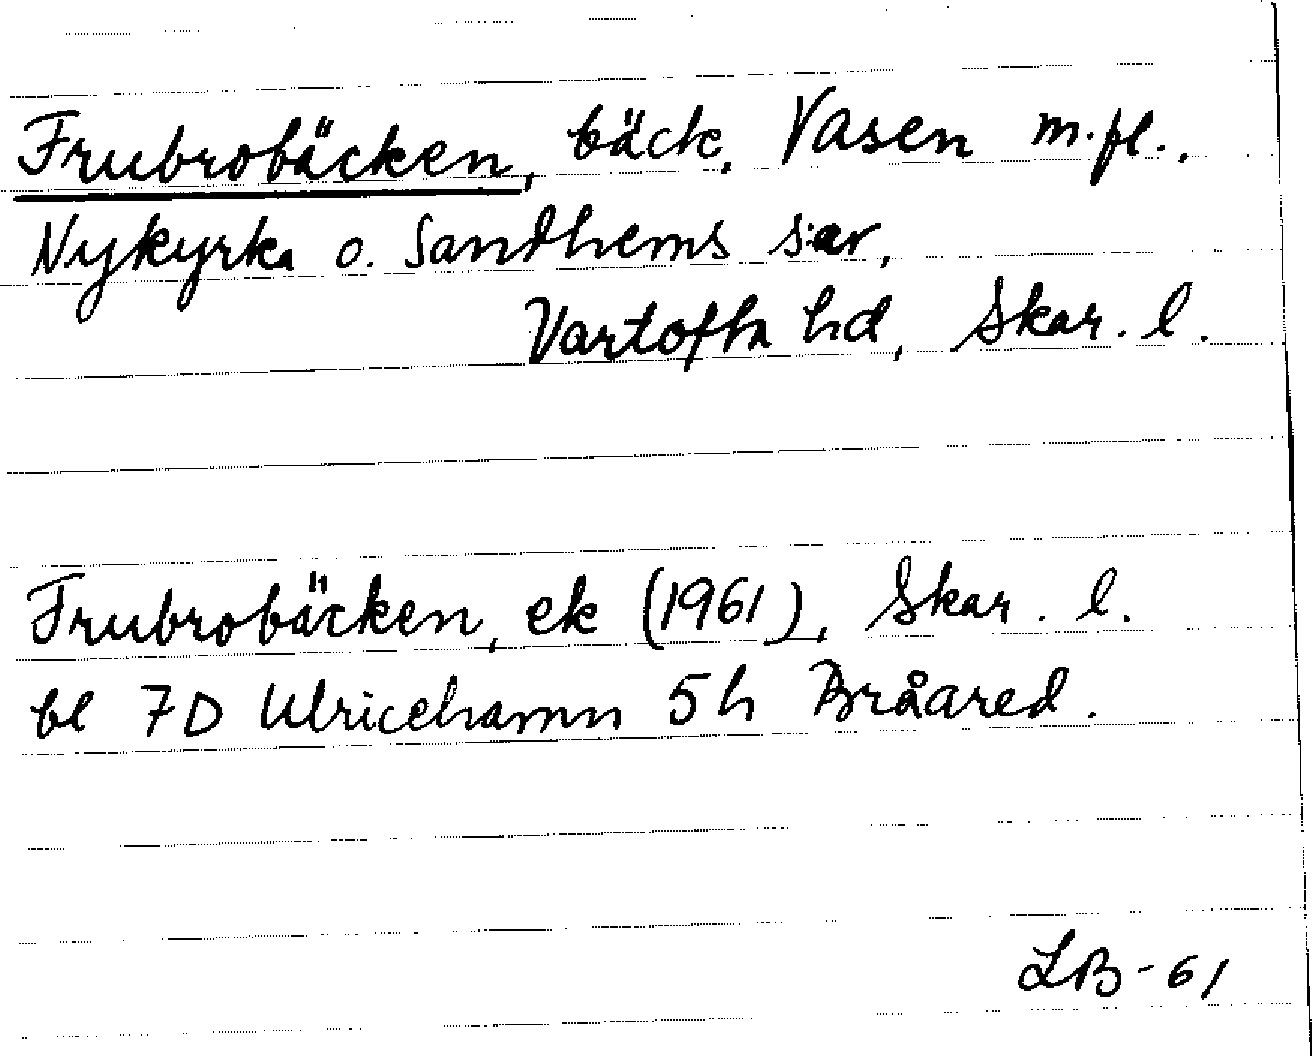 Frubrobäcken, bäck, Vasen m.fl.,
Nykyrka o. Sandhems s:ar,
Vartofta hd, Skar. l.
Frubrobäcken, ek (1961), Skar. l.
bl 7D Ulricehamn 5h Bråared.
LB-61